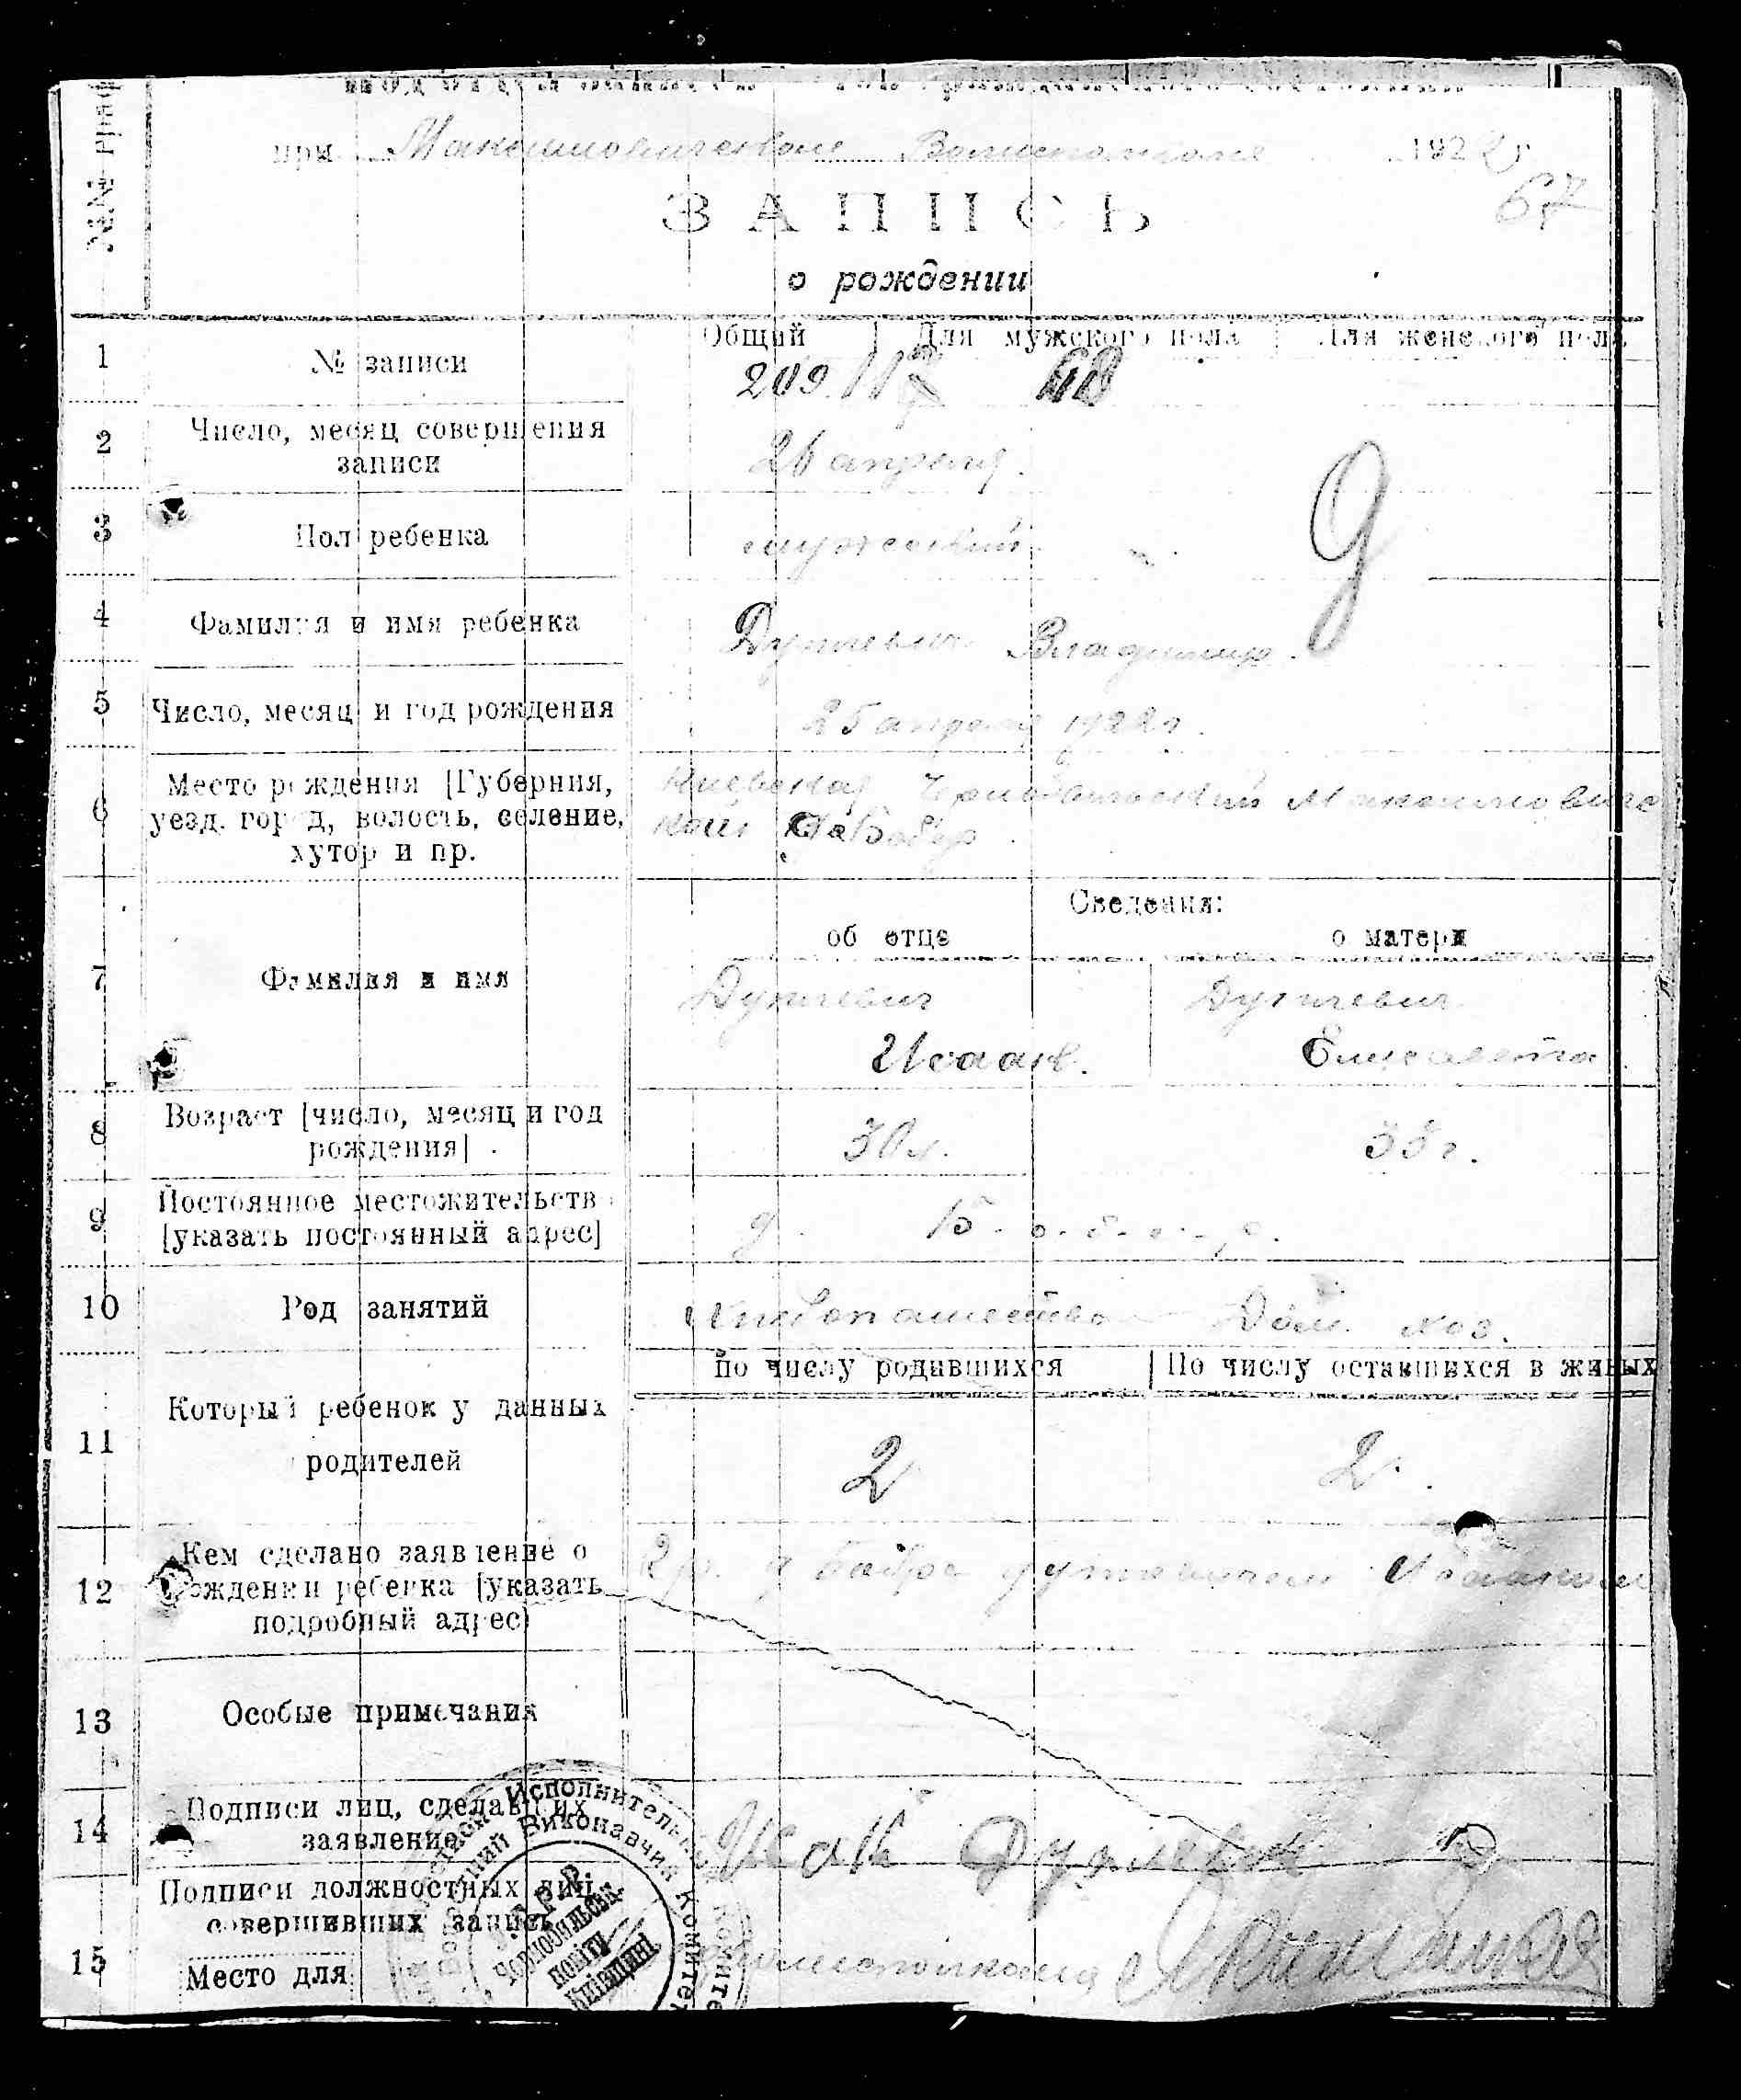 №№ граф
при Максимовическом Волисполкоме 1922 г.
67
ЗАПИСЬ
о рождении
Общий Для мужского пола Для женского пола
1 № записи 209. 117 68
2 Число, месяц совершения
записи 26 апреля.
3 Пол ребенка мужеский
9
4 Фамилия и имя ребенка Дуткевич Владимир.
5 Число, месяц и год рождения 25 апреля 1922 г.
6 Место рождения [Губерния,
уезд, город, волость, селение,
хутор и пр.
Киевская Чернобыльский Максимович
кой Бобер.
Сведения:
об отце о матери
7 Фамилия и имя Дуткевич Дуткевич
Исаак. Елисавета.
8 Возраст [число, месяц и год
рождения] 30 л. 33 г.
9 Постоянное местожительство
[указать постоянный адрес] д. Бобер.
10 Род занятий Хлебопашество Дом. хоз.
По числу родившихся По числу оставшихся в живых
11 Который ребенок у данных
родителей 2 2.
12 Кем сделано заявление о
рождении ребенка [указать
подробный адрес]
Гр. д Бобра Дуткевичем Исааком
13 Особые примечания
14 Подписи лиц, сделавших
заявление Исак Дуткевич
15 Подписи должностных лиц,
совершивших запись
Место для
Исполнительный Комитет
Волосний Виконавчий Комитет
У.С.Р.Р.
Чорнобильськ.
повіту
Київщині